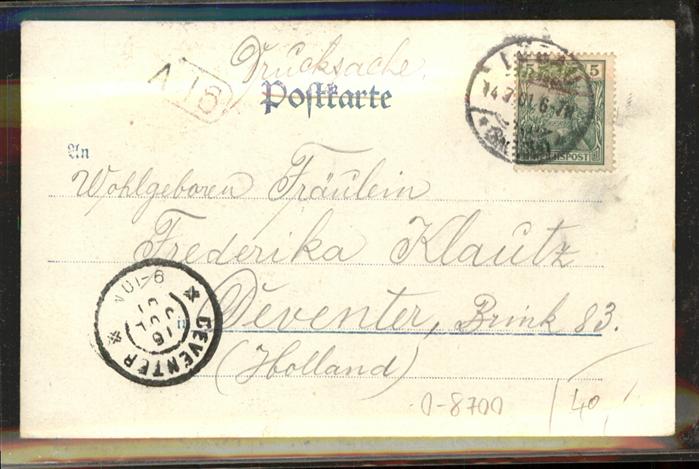 Drucksache.
Postkarte
An
Wohlgeboren Fräulein
Frederika Klautz
Deventer, Brink 83.
(Holland)
DEVENTER
16
JUL
01
14.7.01.6-7N
5 5
REICHSPOST
0-8700
40